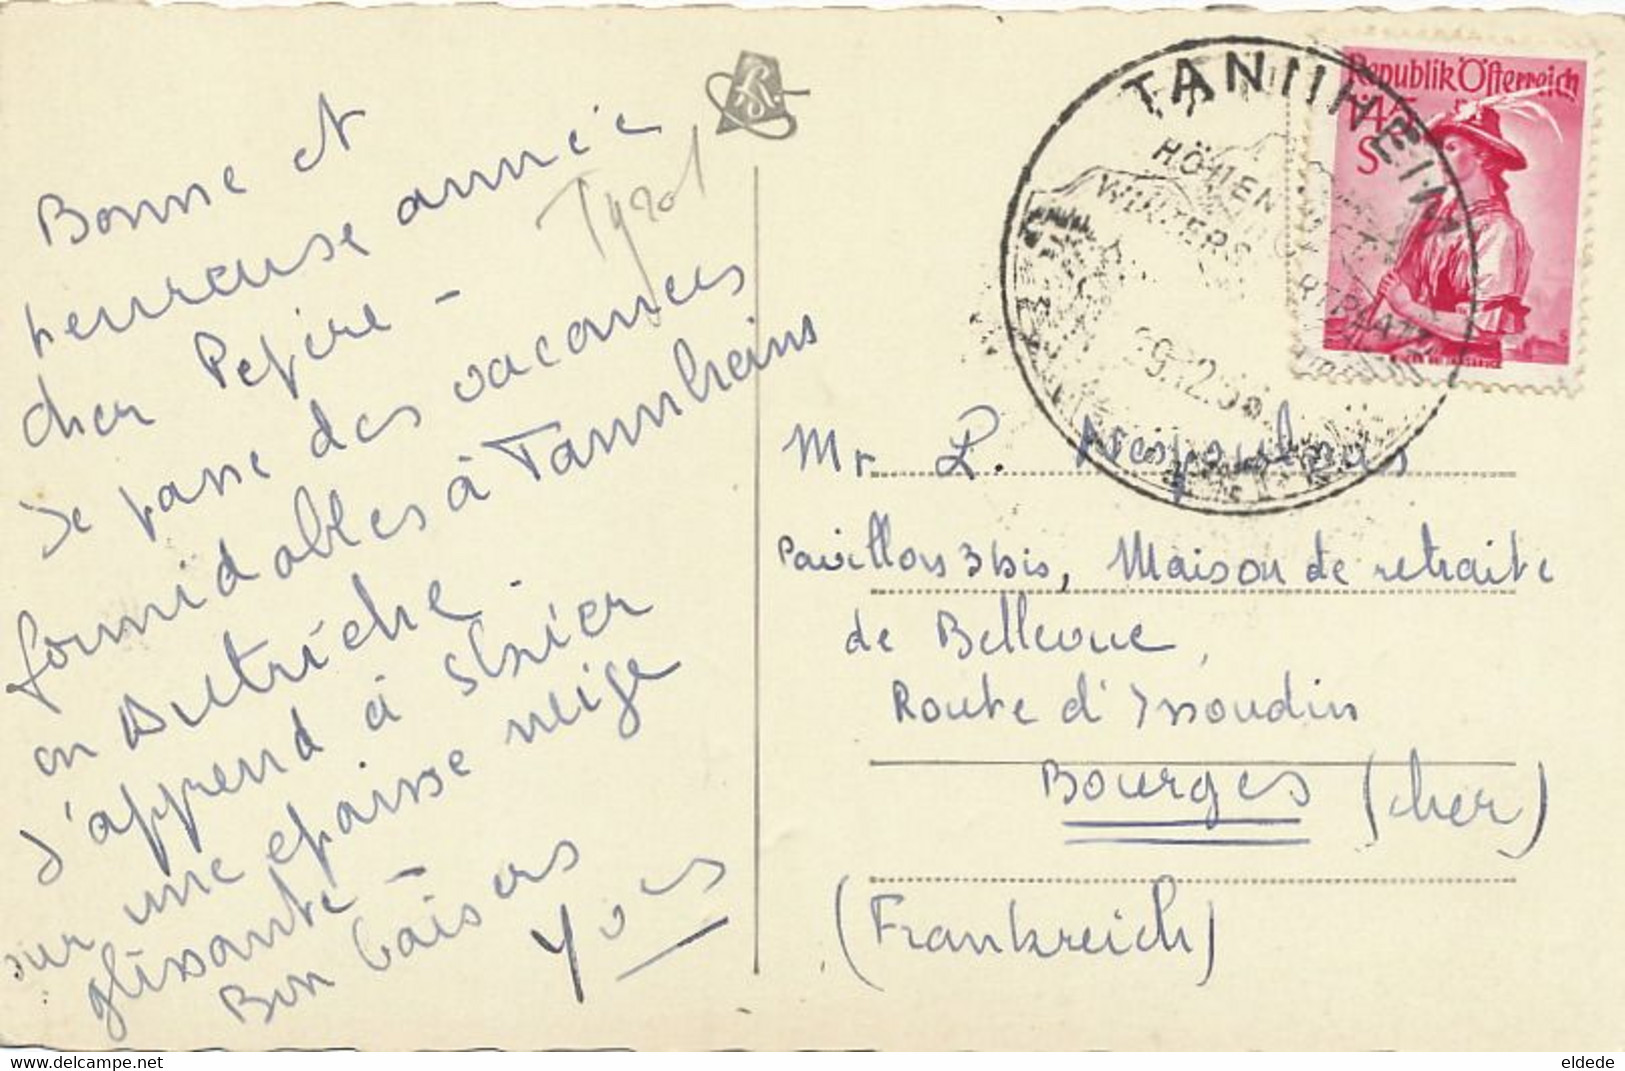 Bonne et
heureuse année
cher Pépère -
Je passe des vacances
formidables à Tannheim
en Autriche -
J'apprend à skier
sur une epaisse neige
glissante -
Bon baisers
Yves
Tyrol
TANNHEIM
HÖHEN
WINTERS
29.12.
Republik Österreich
S
Mr L.
Pavillon 3 bis, Maison de retraite
de Bellevue,
Route d'Issoudun
Bourges (Cher)
(Frankreich)
https://www.delcampe.net
eldede